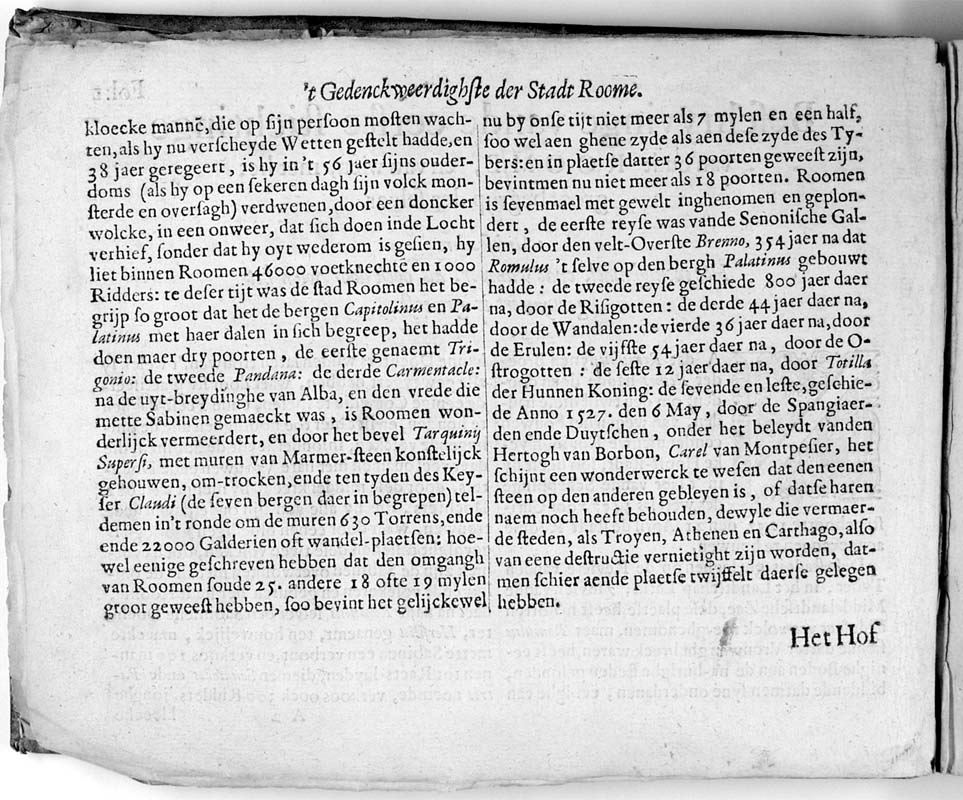 't Gedenckweerdighſte der Stadt Roome.
kloecke mannē, die op ſijn perſoon moſten wach-
ten, als hy nu verſcheyde Wetten geſtelt hadde, en
38 jaer geregeert, is hy in't 56 jaer ſijns ouder-
doms (als hy op een ſekeren dagh ſijn volck mon-
ſterde en overſagh) verdwenen, door een doncker
wolcke, in een onweer, dat ſich doen inde Locht
verhief, ſonder dat hy oyt wederom is geſien, hy
liet binnen Roomen 46000 voetknechtē en 1000
Ridders: te deſer tijt was de ſtad Roomen het be-
grijp ſo groot dat het de bergen Capitolinus en Pa-
latinus met haer dalen in ſich begreep, het hadde
doen maer dry poorten, de eerſte genaemt Tri-
gonio: de tweede Pandana: de derde Carmentacle:
na de uyt-breydinghe van Alba, en den vrede die
mette Sabinen gemaeckt was, is Roomen won-
derlijck vermeerdert, en door het bevel Tarquinij
Superſi, met muren van Marmer-ſteen konſtelijck
gehouwen, om-trocken, ende ten tyden des Key-
ſer Claudi (de ſeven bergen daer in begrepen) tel-
demen in't ronde om de muren 630 Torrens, ende
ende 22000 Galderien oft wandel-plaetſen: hoe-
wel eenige geſchreven hebben dat den omgangh
van Roomen ſoude 25. andere 18 ofte 19 mylen
groot geweeſt hebben, ſoo bevint het gelijckewel
nu by onſe tijt niet meer als 7 mylen en een half,
ſoo wel aen ghene zyde als aen deſe zyde des Ty-
bers: en in plaetſe datter 36 poorten geweeſt zijn,
bevintmen nu niet meer als 18 poorten. Roomen
is ſevenmael met gewelt inghenomen en geplon-
dert, de eerſte reyſe was vande Senoniſche Gal-
len, door den velt-Overſte Brenno, 354 jaer na dat
Romulus 't ſelve op den bergh Palatinus gebouwt
hadde: de tweede reyſe geſchiede 800 jaer daer
na, door de Riſigotten: de derde 44 jaer daer na,
door de Wandalen: de vierde 36 jaer daer na, door
de Erulen: de vijfſte 54 jaer daer na, door de O-
ſtrogotten: de ſeſte 12 jaer daer na, door Totilla
der Hunnen Koning: de ſevende en leſte, geſchie-
de Anno 1527. den 6 May, door de Spangiaer-
den ende Duytſchen, onder het beleydt vanden
Hertogh van Borbon, Carel van Montpeſier, het
ſchijnt een wonderwerck te weſen dat den eenen
ſteen op den anderen gebleven is, of datſe haren
naem noch heeft behouden, dewyle die vermaer-
de ſteden, als Troyen, Athenen en Carthago, alſo
van eene deſtructie vernietight zijn worden, dat-
men ſchier aende plaetſe twijffelt daerſe gelegen
hebben.
Het Hof